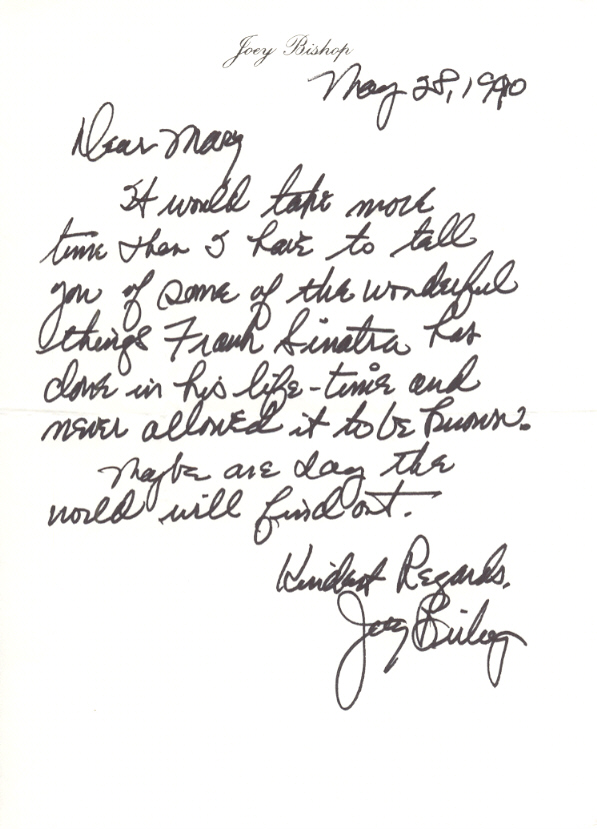 Joey Bishop
May 28, 1990
Dear Mary
It would take more
time then I have to tell
you of some of the wonderful
things Frank Sinatra has
done in his life-time and
never allowed it to be known.
Maybe one day the
world will find out.
Kindest Regards.
Joey Bishop